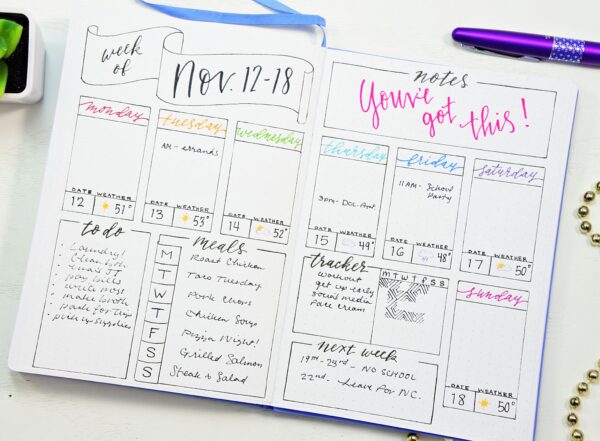 week
of
Nov. 12-18
monday
DATE WEATHER
12 51°
tuesday
AM - errands
DATE WEATHER
13 53°
wednesday
DATE WEATHER
14 52°
to do
laundry!
clean
email JT
pay bills
write post
make broth
pack for trip
pick up supplies
meals
M Roast Chicken
T Taco Tuesday
W Pork Chops
T Chicken Soup
F Pizza Night!
S Grilled Salmon
S Steak & Salad
notes
You've
got this!
thursday
3pm - Doc. Apt.
DATE WEATHER
15 49°
friday
11AM - School
Party
DATE WEATHER
16 48°
saturday
DATE WEATHER
17 50°
tracker
M T W T F S S
workout
get up early
social media
face cream
next week
19th - 23rd - NO SCHOOL
22nd - Leave for NC.
sunday
DATE WEATHER
18 50°